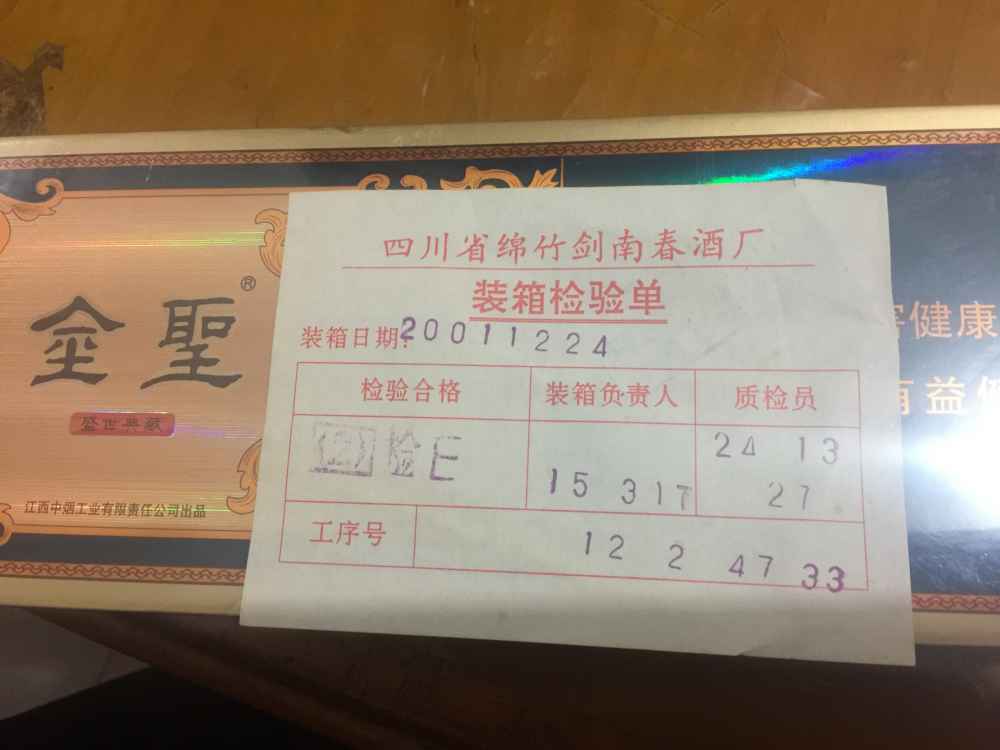 四川省绵竹剑南春酒厂
装箱检验单
装箱日期: 20011224
检验合格 装箱负责人 质检员
(二) 检E 15 317 24 13
27
工序号 12 2 47 33
金聖®
盛世典藏
江西中烟工业有限责任公司出品
健康
有益